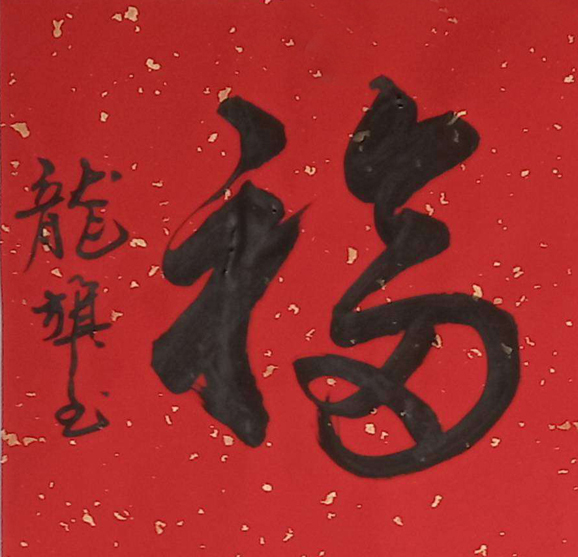 福
龍旗书